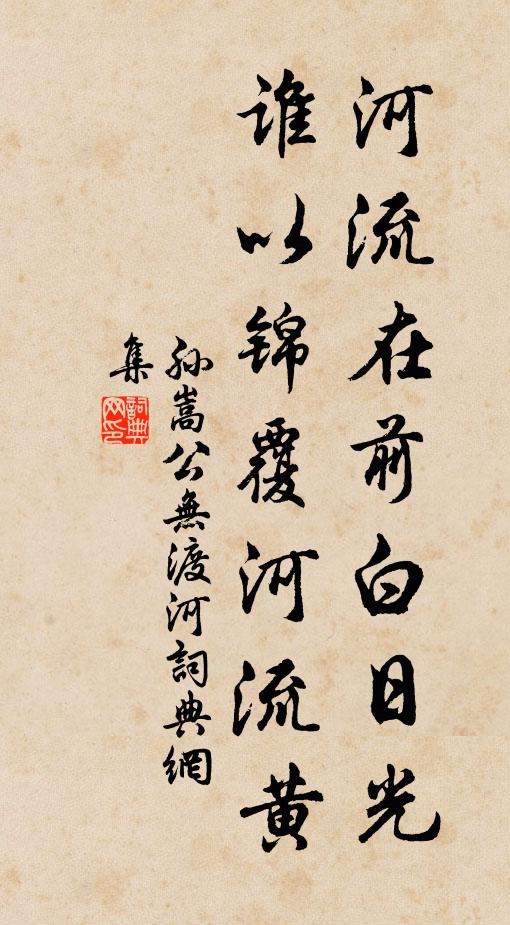 河流在前白日光
誰以錦覆河流黃
孫嵩公無渡河詞典網
集
詞典網印